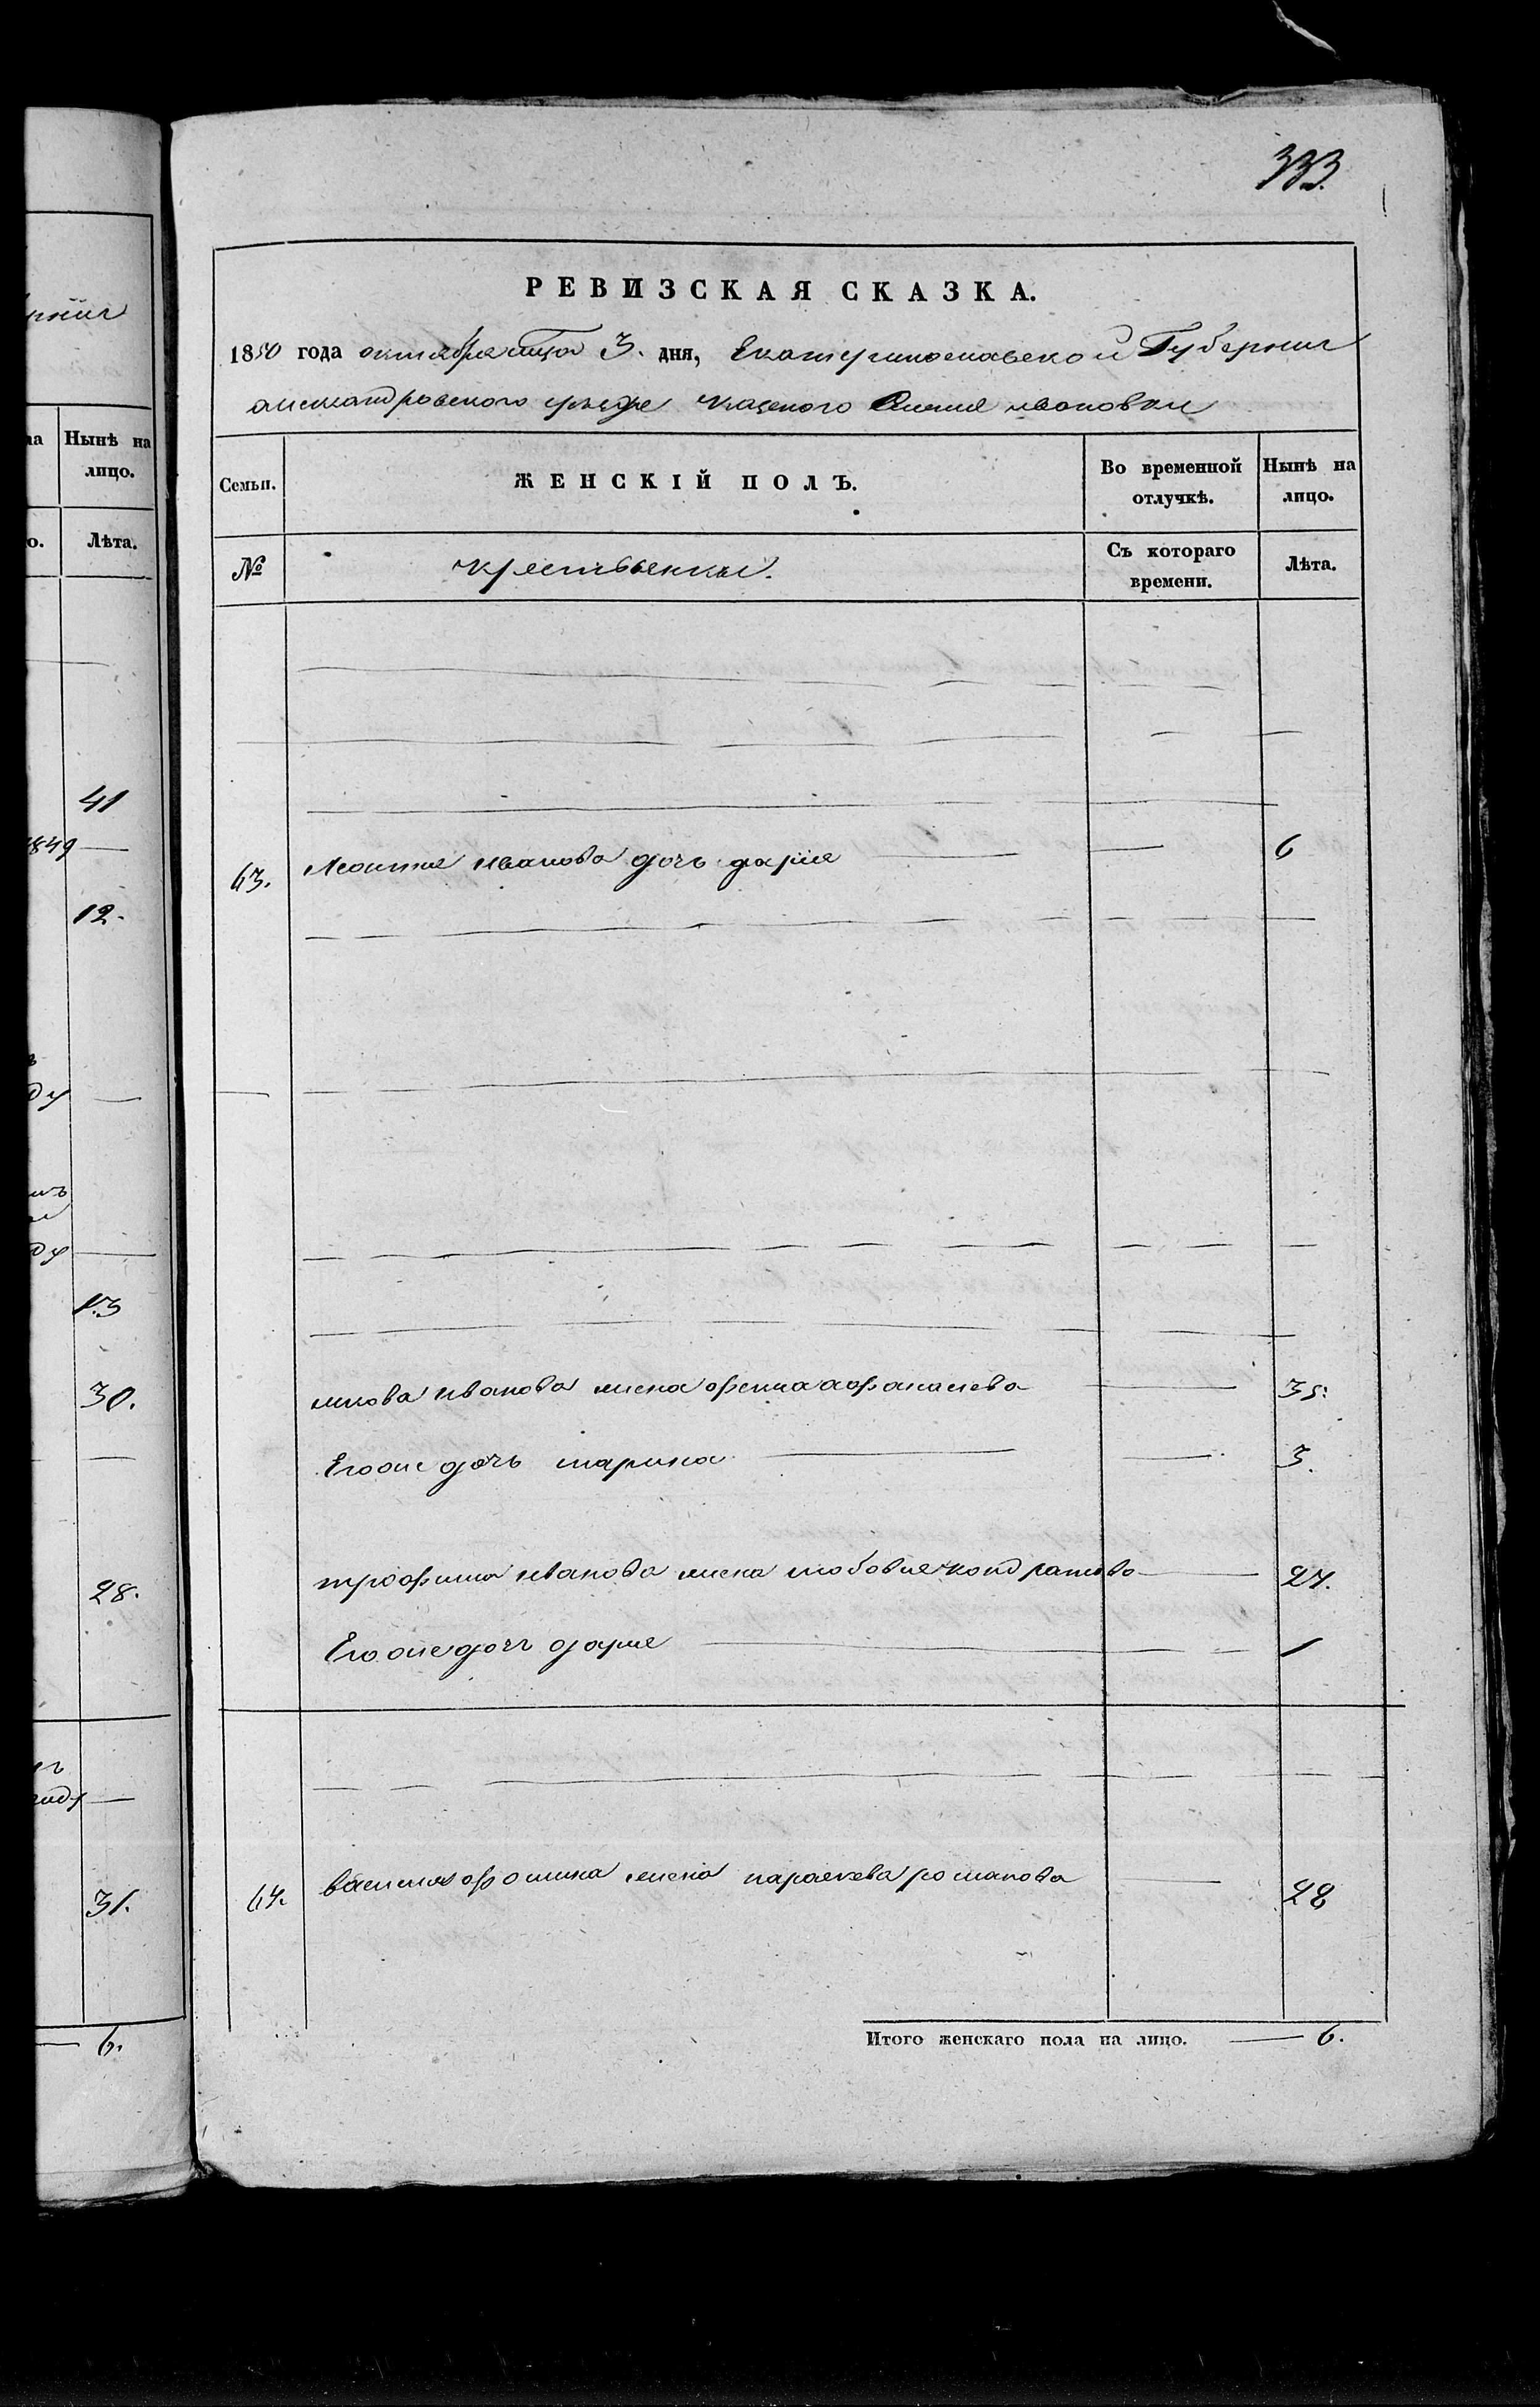 333.
РЕВИЗСКАЯ СКАЗКА.
1850 года октября мца 3. дня, Екатеринославской Губернии
александровского уезда казенного Селения ивановки
Семьи.
ЖЕНСКІЙ ПОЛЪ.
Во временной отлучкѣ.
Нынѣ на лицо.
№
крестьянки.
Съ котораго времени.
Лѣта.
63. Леонтия иванова дочь дария 6
якова иванова жена афанасиева 35.
Егоже дочь марина 3.
трофима иванова жена любовия кондратова 27.
Егоже дочь дария 1
64. василия фомина жена параскева романова 28
Итого женскаго пола на лицо. 6.
Нынѣ на лицо.
Лѣта.
41
1849
12.
13
30.
28.
31.
6.